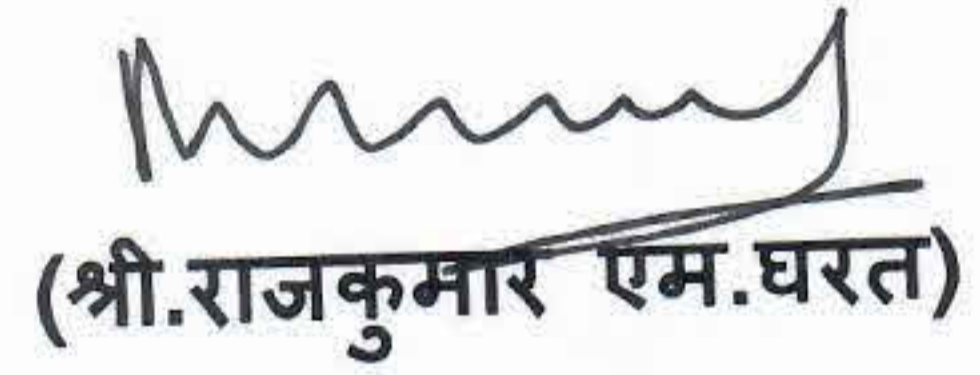 (श्री.राजकुमार एम.घरत)